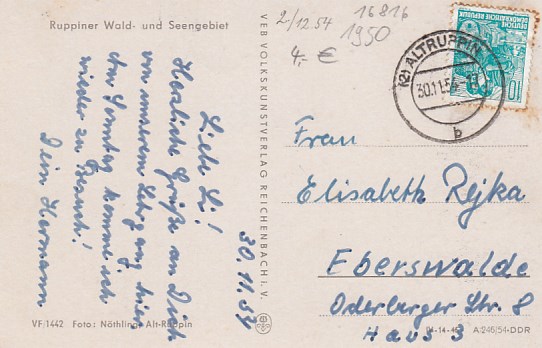 Ruppiner Wald- und Seengebiet
30.11.54
Liebe Li!
Herzliche Grüße an Dich
von unserem Lehrgang hier,
den Sonntag komme ich
wieder zu Besuch!
Dein Hermann
VF 1442 Foto: Nöthling, Alt-Ruppin
VEB VOLKSKUNSTVERLAG REICHENBACH i. V.
2/12 54
16816
1950
4,- €
(2) ALTRUPPIN
30.11.54
b
DEUTSCHE
DEMOKRATISCHE REPUBLIK
10
Frau
Elisabeth Rejka
Eberswalde
Oderberger Str. 8
Haus 3
A 246/54-DDR